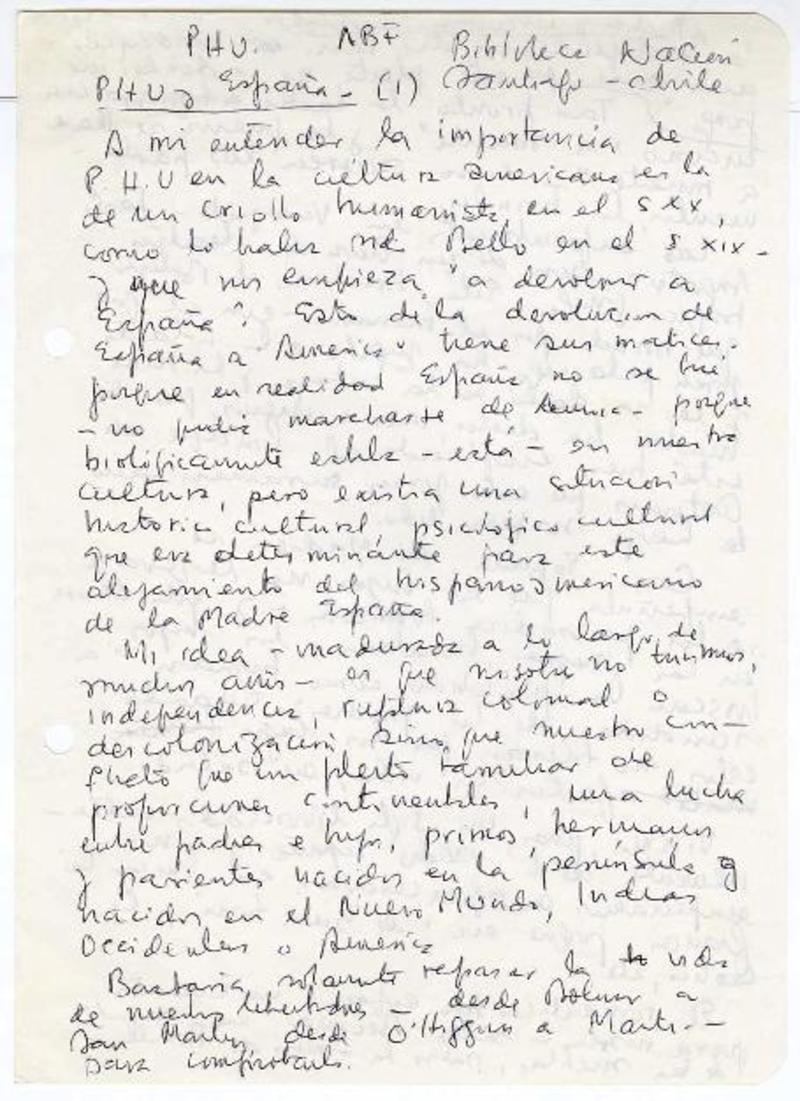 PHU. ABF Biblioteca Nacion
PHU y España - (1) Santiago - chile
A mi entender la importancia de
P.H.U en la cultura americana es la
de un criollo humanista, en el s XX,
como lo había sido Bello en el s XIX -
y que nos empieza "a devolver a
España". Esto de la devolucion de
España a America" tiene sus matices.
porque en realidad España no se fué
- no podia marcharse de America - porque
biológicamente estaba - está - en nuestra
cultura, pero existia una situacion
historico cultural, psicologico cultural
que era determinante para este
alejamiento del hispanoamericano
de la Madre España.
Mi idea - madurada a lo largo de
muchos años - es que nosotros no tuvimos,
independencia, ruptura colonial o
descolonización sino que nuestro con-
flicto fue un pleito familiar de
proporciones continentales, una lucha
entre padres e hijos, primos, hermanos
y parientes nacidos en la peninsula y
nacidos en el Nuevo Mundo, Indias
Occidentales o America
Bastaria solamente repasar la vida
de nuestros libertadores - desde Bolivar a
San Martin desde O'Higgins a Marti -
para comprobarlo.